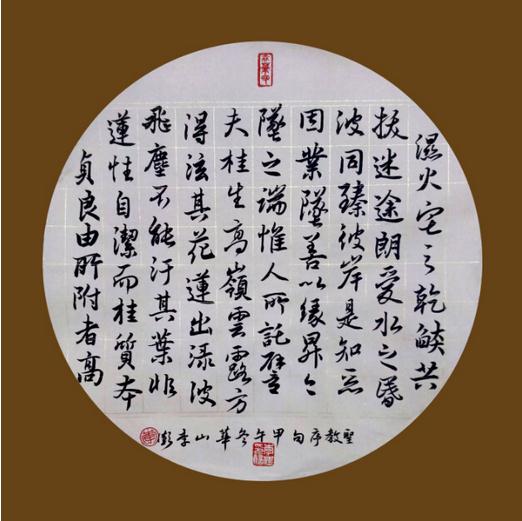 濕火宅之乾燄共
拔迷途朗愛水之昬
波同臻彼岸是知惡
因業墜善以緣昇々
墜之端惟人所託譬
夫桂生高嶺雲露方
得泫其花蓮出淥波
飛塵不能汙其葉非
蓮性自潔而桂質本
貞良由所附者高
聖教序句甲午冬華山李